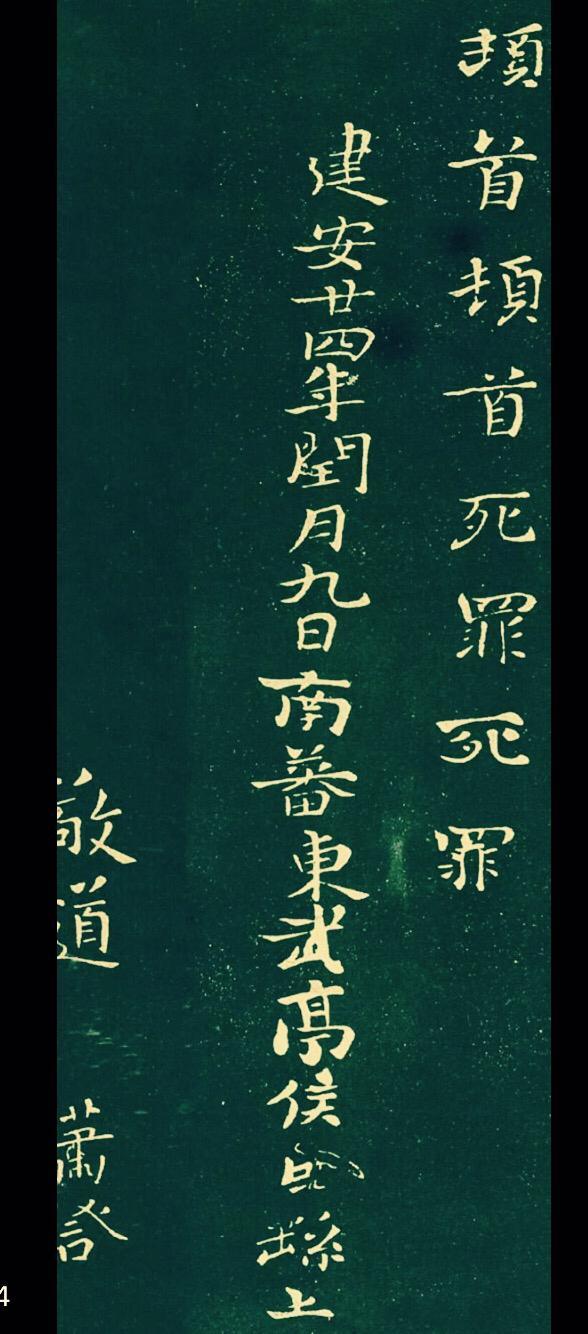 頓首頓首死罪死罪
建安廿四年閏月九日南蕃東武亭侯臣繇上
敬道 蕭
4